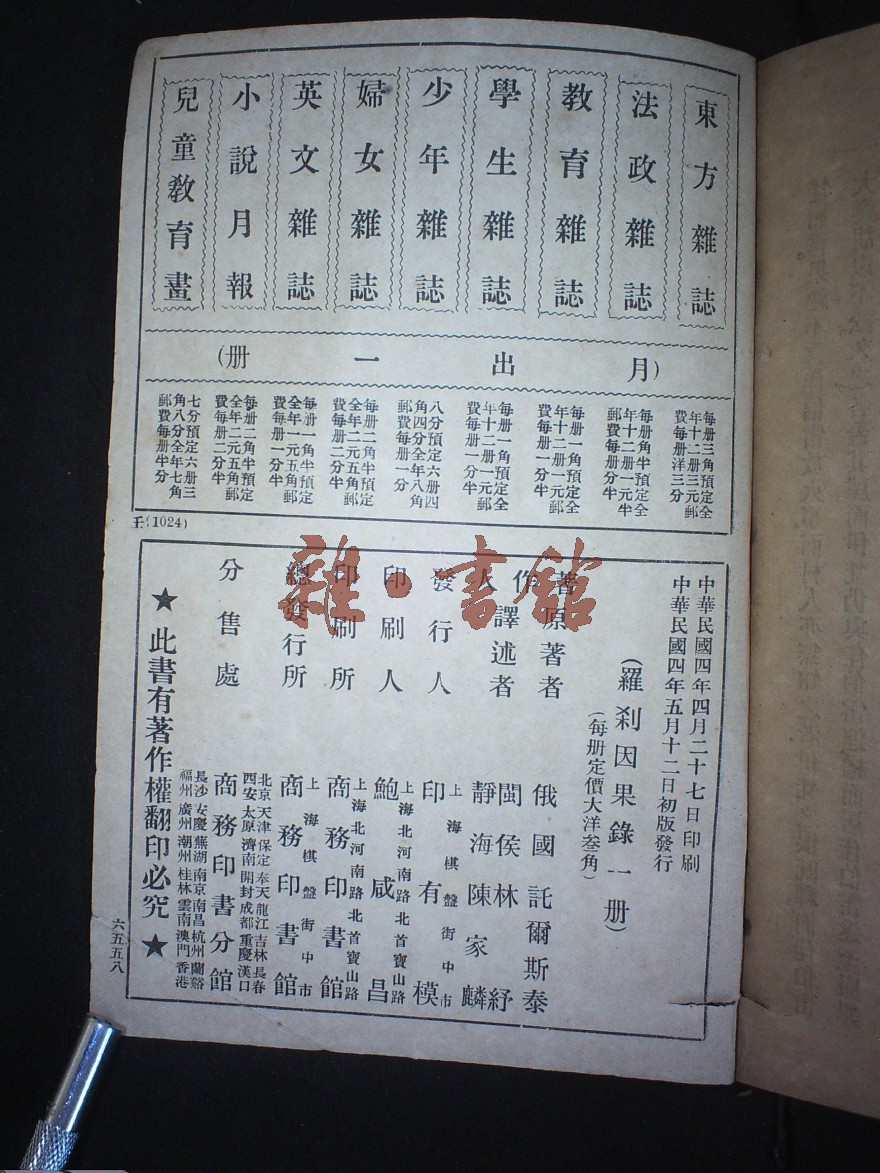 東方雜誌
法政雜誌
教育雜誌
學生雜誌
少年雜誌
婦女雜誌
英文雜誌
小說月報
兒童教育畫
(月出一册)
每册三角預定全
年十二册三元郵
費每册洋三分
每册角半預定全
年十二册一元半
郵費每册分半
每册一角預定全
年十二册一元郵
費每册一分半
每册一角預定全
年十二册一元郵
費每册一分半
八分預定六册四
角四分全年八角
郵費每册一分
每册二角半預定
全年二元五角郵
費每册二分半
每册一角半預定
全年一元五角郵
費每册一分半
每册二角半預定
全年二元五角郵
費每册二分半
七分預定六册三
角八分全年七角
郵費每册半分
壬(1024)
中華民國四年四月二十七日印刷
中華民國四年五月十二日初版發行
(羅刹因果錄一册)
(每册定價大洋叁角)
著作人
原著者 俄國託爾斯泰
譯述者 閩侯林紓
靜海陳家麟
發行人 印有模
上海棋盤街中市
印刷人 鮑咸昌
上海北河南路北首寶山路
印刷所 商務印書館
上海北河南路北首寶山路
總發行所 商務印書館
上海棋盤街中市
分售處 商務印書分館
北京天津保定奉天龍江吉林長春
西安太原濟南開封成都重慶漢口
長沙安慶蕪湖南京南昌杭州蘭谿
福州廣州潮州桂林雲南澳門香港
★此書有著作權翻印必究★
六五五八
雜·書館